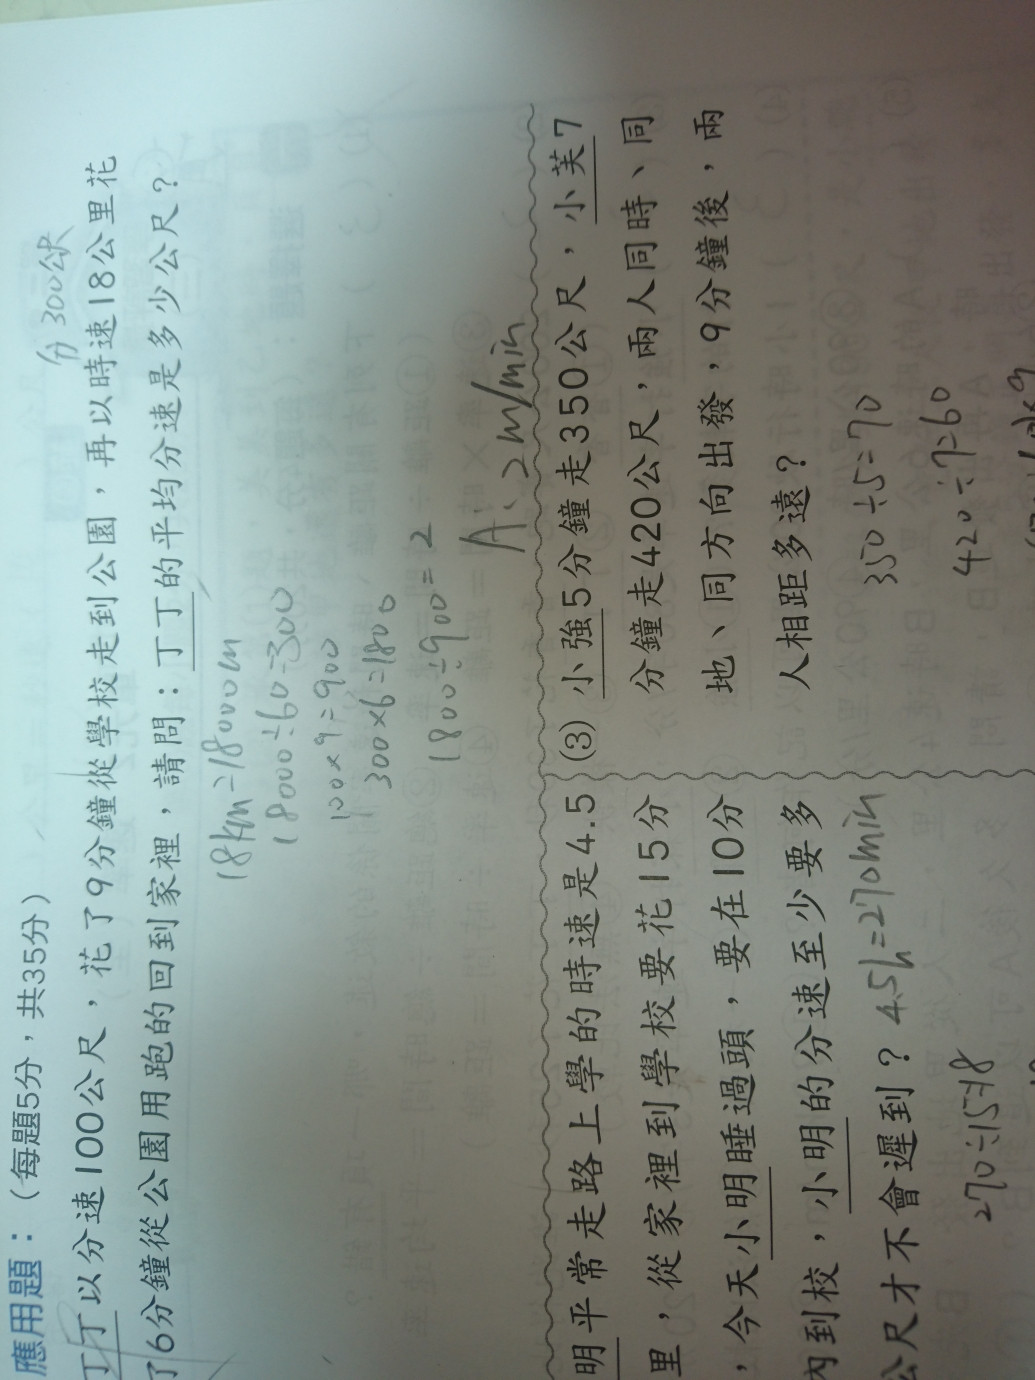 應用題：（每題5分，共35分）
分 300公尺
丁丁以分速100公尺，花了9分鐘從學校走到公園，再以時速18公里花
了6分鐘從公園用跑的回到家裡，請問：丁丁的平均分速是多少公尺？
18km=18000m
18000÷60=300
100×9=900
300×6=1800
1800÷900=2
A: 2m/min
明平常走路上學的時速是4.5
里，從家裡到學校要花15分
，今天小明睡過頭，要在10分
內到校，小明的分速至少要多
公尺才不會遲到？ 4.5h=270min
270÷15=18
(3) 小強5分鐘走350公尺，小芙7
分鐘走420公尺，兩人同時、同
地、同方向出發，9分鐘後，兩
人相距多遠？
350÷5=70
420÷7=60